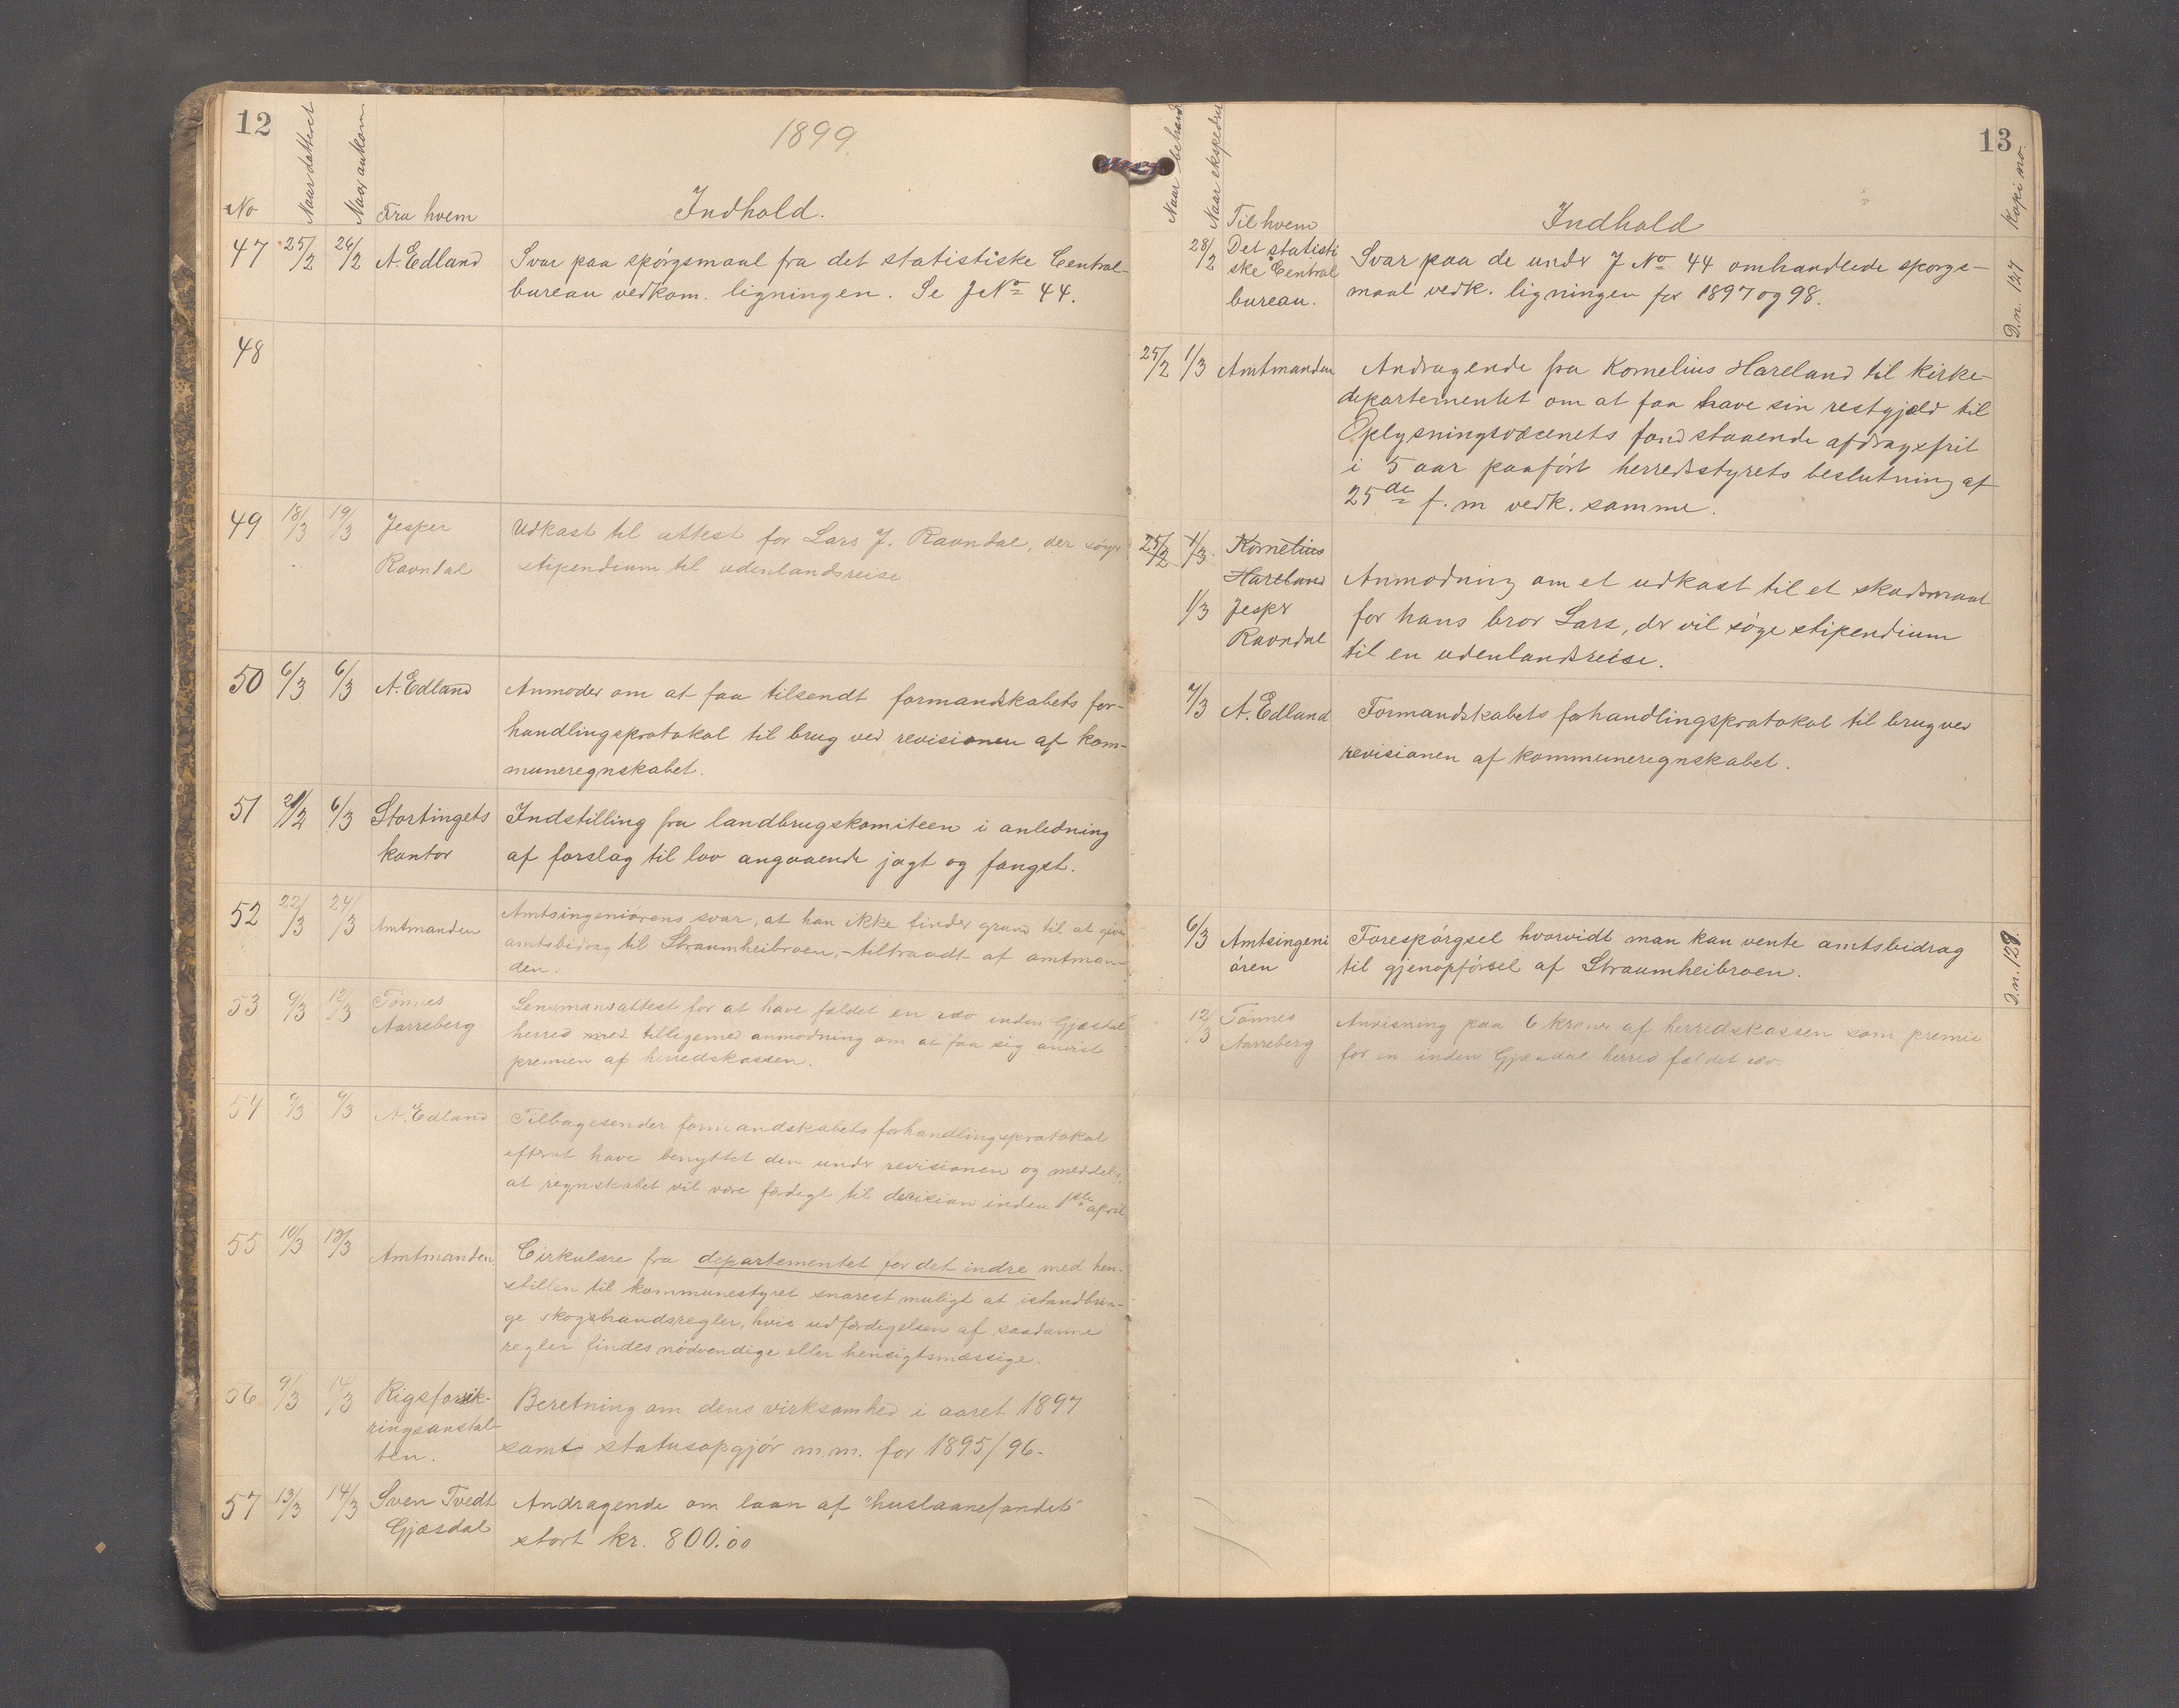 12
1899.
No
Naar datteret
Naar ankom
Fra hvem
Indhold.
47 25/2 26/2 A. Edland Svar paa spórgsmaal fra det statistiske Central-
bureau vedkom. ligningen. Se J No 44.
48
49 18/3 19/3 Jesper Udkast til attest for Lars J. Ravndal, der søger
Ravndal stipendium til udenlandsreise
50 6/3 6/3 A. Edland Anmoder om at faa tilsendt formandskabets for-
handlingsprotokol til brug ved revisionen af kom-
muneregnskabet.
51 21/2 6/3 Stortingets Indstilling fra landbrugskomiteen i anledning
kontor af forslag til lov angaaende jagt og fangst.
52 22/3 24/3 Amtmanden Amtsingeniórens svar, at han ikke finder grund til at give
amtsbidrag til Straumheibroen, - tiltraadt af amtman-
den.
53 9/3 12/3 Tónnes Lensmansattest for at have fældet en ræv inden Gjæsdal
Aarreberg herred med tilligemed anmodning om at faa sig anvist
premien af herredskassen.
54 9/3 9/3 A. Edland Tilbagesender formandskabets forhandlingsprotokol
efterat have benyttet den under revisionen og meddeler,
at regnskabet vil være færdigt til decision inden 1ste april
55 10/3 13/3 Amtmanden Cirkulære fra departementet for det indre med hen-
stillen til kommunestyret snarest muligt at istandbrin-
ge skogsbrandsregler, hvis udfærdigelsen af saadanne
regler findes nódvendige eller hensigtsmæssige.
56 9/3 14/3 Rigsforsik- Beretning om dens virksomhed i aaret 1897
ringsanstal- samt statusopgjór m.m. for 1895/96-
ten.
57 13/3 14/3 Sven Tvedt Andragende om laan af "huslaanefondet"
Gjæsdal stort kr. 800.00
13
Naar behand
Naar ekspedret
Til hvem
Indhold
Kopi no.
28/2 Det statisti Svar paa de under J No 44 omhandlede sporgs-
ske Central maal vedk. ligningen for 1897 og 98.
bureau.
D.n. 127
25/2 1/3 Amtmanden Andragende fra Kornelius Hareland til Kirke-
departementet om at faa have sin restgjæld til
Oplysningsvæsenets fond staaende afdragsfrit
i 5 aar paafórt herredsstyrets beslutning af
25de f. m vedk. samme.
25/2 1/3. Kornelius
Hareland Anmodning om et udkast til et skudsmaal
1/3 Jesper for hans bror Lars, der vil søge stipendium
Ravndal til en udenlandsreise.
7/3 A. Edland Formandskabets forhandlingsprotokol til brug ved
revisionen af kommuneregnskabet.
6/3 Amtsingeni Forespórgsel hvorvidt man kan vente amtsbidrag
óren til gjenopfórsel af Straumheibroen.
D.n. 128.
12/3 Tónnes Anvisning paa 6 kroner af herredskassen som premie
Aarreberg for en inden Gjæsdal herred fældet ræv.